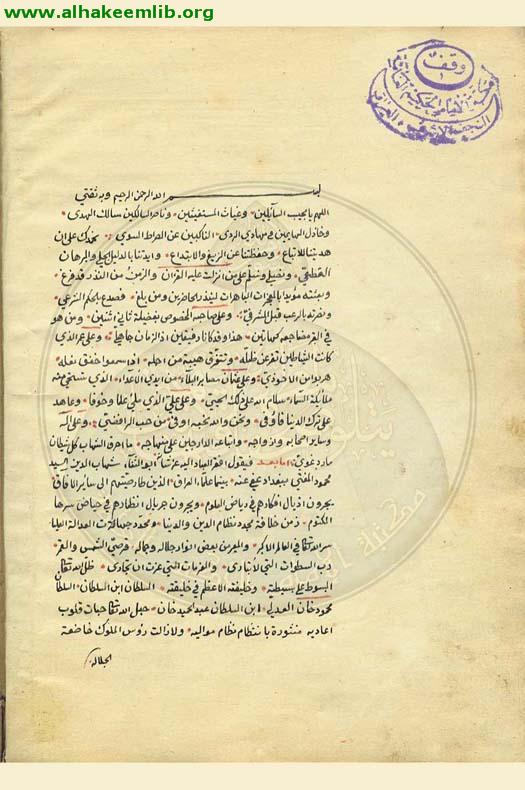 www.alhakeemlib.org
وقف
مكتبة الإمام الحكيم العامة
النجف الأشرف - العراق
بسم الله الرحمن الرحيم وبه ثقتي
اللهم يا مجيب السائلين وغياث المستغيثين وناصر السالكين مسالك الهدى
وخاذل الهايمين في مهاوي الردى الناكبين عن الصراط السوي نحمدك على ان
هديتنا للاتباع وحفظتنا عن الزيغ والابتداع وايدتنا بالدليل الجلي والبرهان
القطعي ونصلي ونسلم على من انزلت عليه القران والزمن من النذر قد فرغ
وبعثته مويدا بالمعجزات الباهرات لينذر الحاضرين ومن بلغ فصدع بالحكم الشرعي
ونصرته بالرعب قبل المشرفي وعلى صاحبه المخصوص بفضيلة ثاني اثنين ومن هو
في القبر مضاجعه كهاتين هذا وقد كانا رفيقين اذ الزمان جاهلي وعلى عمر الذي
كانت الشياطين تفر عن ظله وتتوقى هيبة من اجله اذا سمعوا خفق نعله
هربوا من الاحوذي وعلى عثمان مصابر البلاء من ايدي الاعداء الذي تستحي منه
ملايكة السماء سلام الله على ذلك الحيي وعلى علي الذي ملي علما وخوفا وعاهد
على ترك الدنيا فاوفى ونحن والله نحبه اوفى من حب الرافضي وعلى اله
وساير اصحابه وازواجه واتباعه الدارجين على منهاجه ما احرق الشهاب كل شيطان
مارد غوي اما بعد فيقول افقر العباد اليه عز شأنه ابو الثناء شهاب الدين السيد
محمود المفتي ببغداد عفي عنه بينما علماء العراق الذين طار صيتهم الى ساير الافاق
يجرون اذيال افكارهم في رياض العلوم ويجرون جريال انظارهم في حياض سرها
المكتوم زمن خلافة مجدد نظام الدين والدنيا ومحدد جهات كرة العدالة العليا
سر الله تعالى في العالم الاكبر والمعير من بعض انوار جلاله وجماله قرصي الشمس والقمر
رب السطوات التي لا تبارى والعزمات التي عزت ان تجارى ظل الله تعالى
المبسوط على بسيطته وخليفته الاعظم في خليقته السلطان ابن السلطان السلطان
محمود خان العدلي ابن السلطان عبد الحميد خان جعل الله تعالى حبات قلوب
اعاديه منثورة بانتظام نظام مواليه ولا زالت رؤس الملوك خاضعة
لجلاله